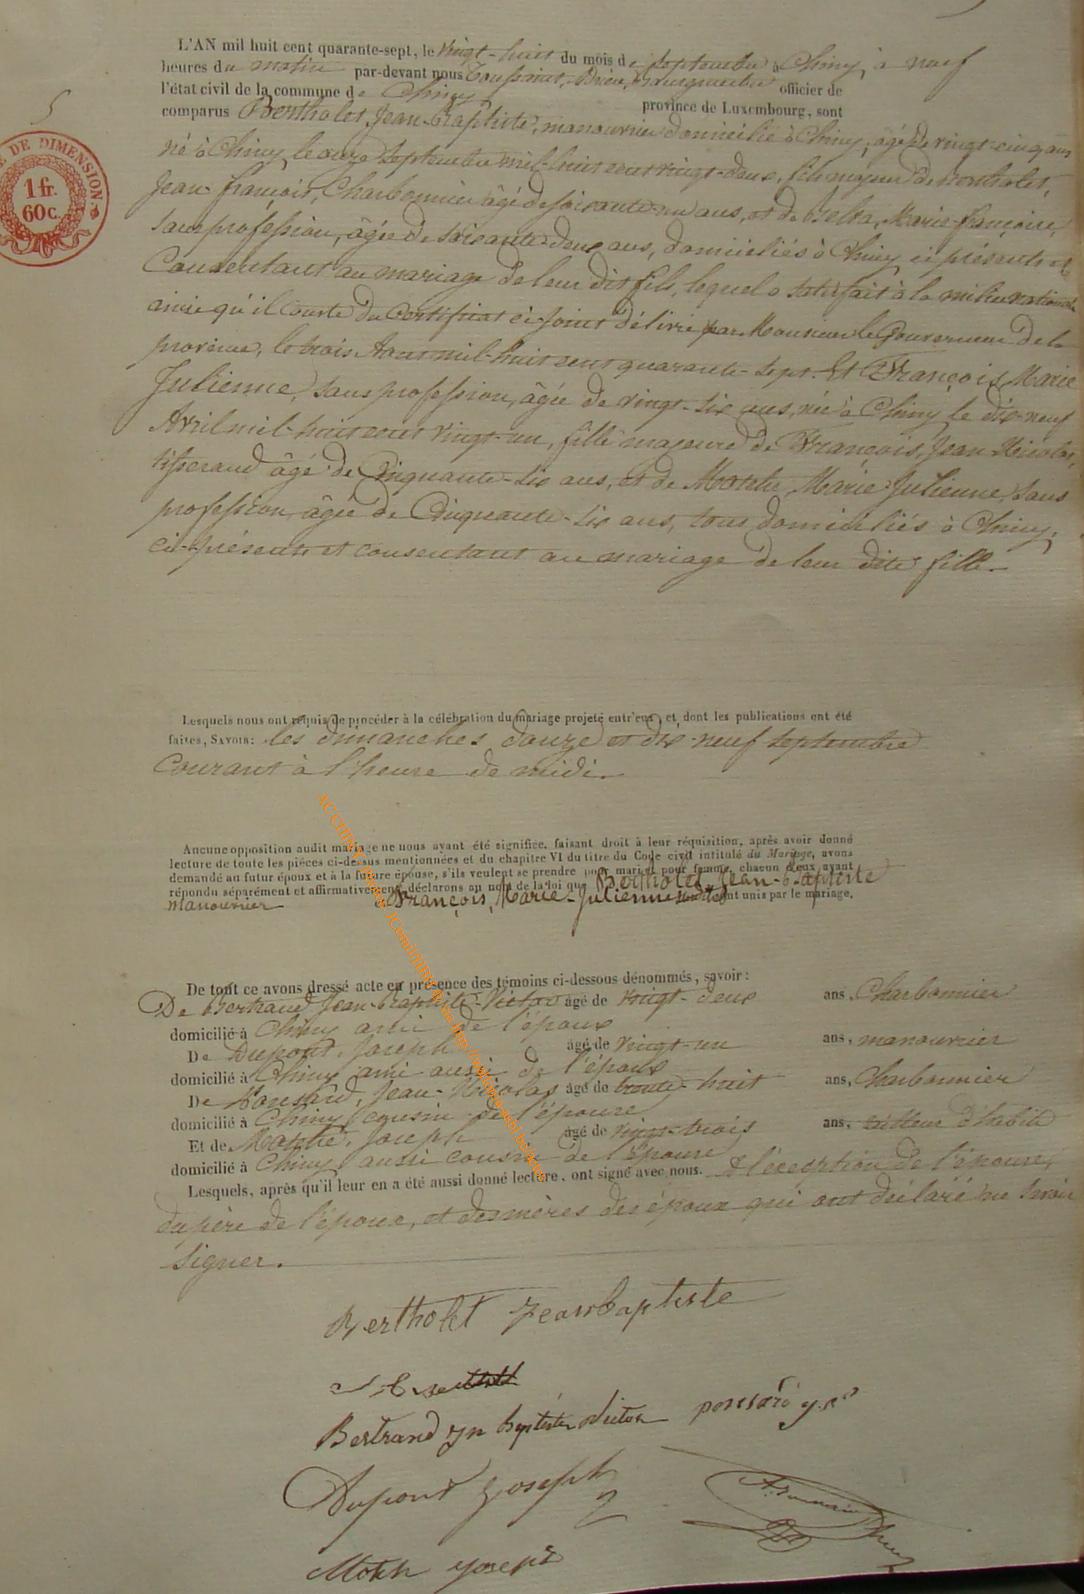 5
E DE DIMENSION
1 fr.
60c.
L'AN mil huit cent quarante-sept, le vingt-huit du mois de septembre à Chiny, à neuf
heures du matin par-devant nous Toussaint, bourgmestre officier de
l'état civil de la commune de Chiny province de Luxembourg, sont
comparus Bertholet, Jean-Baptiste, manouvrier domicilié à Chiny, âgé de vingt-cinq ans
né à Chiny le onze septembre mil-huit cent vingt-deux, fils majeur de Bertholet,
Jean-françois, Charbonnier âgé de soixante-un ans, et de Marie-françoise,
sans profession, âgée de soixante-deux ans, domiciliés à Chiny ci présents et
Consentant au mariage de leur dit fils, lequel a satisfait à la milice nationale
ainsi qu'il conste du certificat ci-joint délivré par Monsieur le Gouverneur de la
province, le trois Aout mil-huit cent quarante-sept. Et François, Marie
Julienne, sans profession, âgée de vingt-six ans, née à Chiny le dix-neuf
Avril mil-huit cent vingt-un, fille majeure de François, Jean Nicolas,
tisserand âgé de Cinquante-six ans, et de Marie Julienne, sans
profession, âgée de Cinquante-six ans, tous domiciliés à Chiny,
ci-présents et consentant au mariage de leur dite fille.
Lesquels nous ont requis de procéder à la célébration du mariage projeté entr'eux, et dont les publications ont été
faites, SAVOIR: les dimanches douze et dix-neuf septembre
Courant à l'heure de midi.
Aucune opposition audit mariage ne nous ayant été signifiée, faisant droit à leur réquisition, après avoir donné
lecture de toute les pièces ci-dessus mentionnées et du chapitre VI du titre du Code civil intitulé du Mariage, avons
demandé au futur époux et à la future épouse, s'ils veulent se prendre pour mari et pour femme, chacun d'eux ayant
répondu séparément et affirmativement, déclarons au nom de la loi que Bertholet, Jean-Baptiste
manouvrier et François, Marie-Julienne sont unis par le mariage.
De tout ce avons dressé acte en présence des témoins ci-dessous dénommés, savoir:
De Bertrand Jean-Baptiste-Victor âgé de vingt-deux ans, Charbonnier
domicilié à Chiny ami de l'époux
De Dupont, Joseph âgé de vingt-un ans, manouvrier
domicilié à Chiny ami aussi de l'époux
De Ponsard, Jean-Nicolas âgé de trente-huit ans, Charbonnier
domicilié à Chiny cousin de l'épouse
Et de Joseph âgé de vingt-trois ans, tailleur d'habits
domicilié à Chiny aussi cousin de l'épouse
Lesquels, après qu'il leur en a été aussi donné lecture, ont signé avec nous. A l'exception de l'épouse,
du père de l'époux, et des mères des époux qui ont déclaré ne savoir
signer.
Bertholet Jean baptiste
Bertrand Jn Baptiste victor ponsard
Dupont Joseph
Joseph